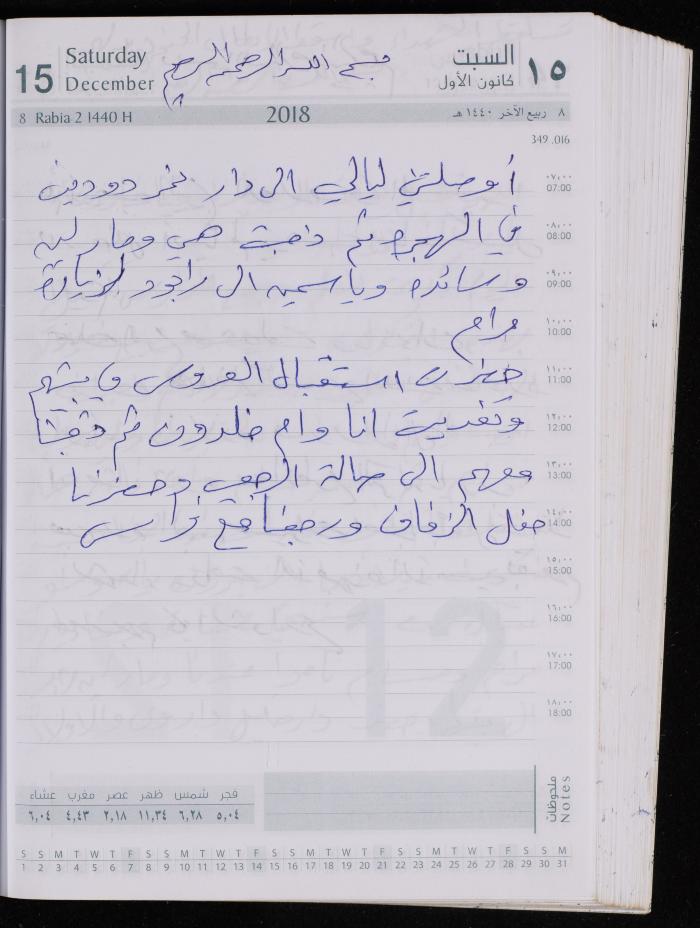 15 Saturday December
السبت كانون الأول ١٥
بسم الله الرحمن الرحيم
8 Rabia 2 1440 H 2018 ٨ ربيع الآخر ١٤٤٠ هـ
349 .016
أوصلتني ليالي الى دار
٠٧،٠٠ 07:00
في الهجرة ثم ذهبت هي ومارلين
٠٨،٠٠ 08:00
وسائده وياسمين الى راجود لزيارة
٠٩،٠٠ 09:00
مرام
١٠،٠٠ 10:00
حضرت استقبال العروس في بيتهم
١١،٠٠ 11:00
وتغديت انا وام خلدون ثم ذهبنا
١٢،٠٠ 12:00
معهم الى صالة وحضرنا
١٣،٠٠ 13:00
حفل الزفاف ورجعنا مع
١٤،٠٠ 14:00
١٥،٠٠ 15:00
١٦،٠٠ 16:00
١٧،٠٠ 17:00
١٨،٠٠ 18:00
12
فجر شمس ظهر عصر مغرب عشاء
٥,٠٤ ٦,٢٨ ١١,٣٤ ٢,١٨ ٤,٤٣ ٦,٠٤
ملحوظات
Notes
S S M T W T F S S M T W T F S S M T W T F S S M T W T F S S M
1 2 3 4 5 6 7 8 9 10 11 12 13 14 15 16 17 18 19 20 21 22 23 24 25 26 27 28 29 30 31